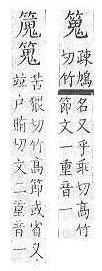 疎鳩
切竹
名又乎乖切高竹
節文一重音一
苦猥切竹高節或省又
並戶賄切文二重音一